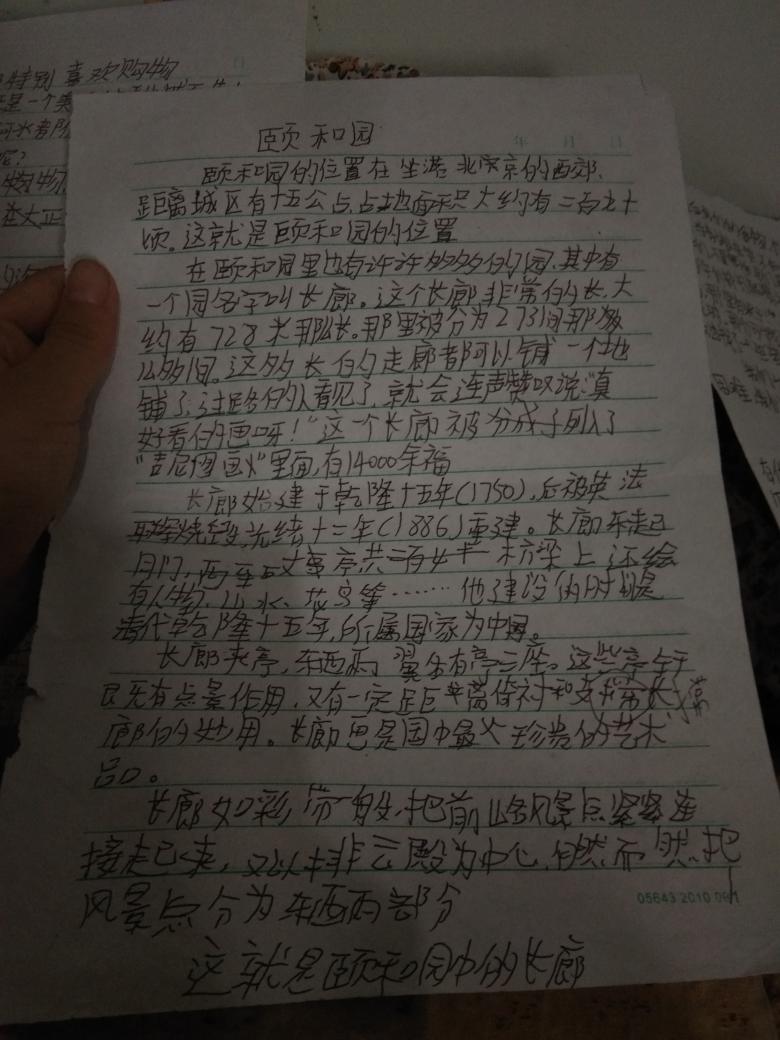 特别喜欢购物
是一个美
颐和园
年 月 日
颐和园的位置在 北京的西郊,
距离城区有十五公点,占地面积大约有二百九十
顷。这就是颐和园的位置
在颐和园里也有许许多多的园,其中有
一个园名字叫长廊。这个长廊非常的长,大
约有728米那么长。那里被分为273间那么
么多间。这多长的走廊都可以铺一个地
铺了,过路的人看见了,就会连声赞叹说:“真
好看的画呀!”这一个长廊被分成了列入了
“吉尼图画火”里面,有14000余福
长廊始建于乾隆十五年(1750),后被英法
联军烧毁,光绪十二年(1886)重建。长廊东起
月门,西至 亭共二百七十 枋梁上还绘
有人物,山水、花鸟等……他建设的时候是
清代乾隆十五年,所属国家为中国。
长廊夹亭,东西两翼各有亭二座。这些亭
既有点景作用,又有一定距离借衬和支 带长
廊的妙用。长廊更是园中最大珍贵的艺术
品。
长廊如彩带一般,把前山各风景点紧紧连
接起来,又以排云殿为中心,自然而然把
风景点分为东西两部分
05643 2010.09
这就是颐和园中的长廊